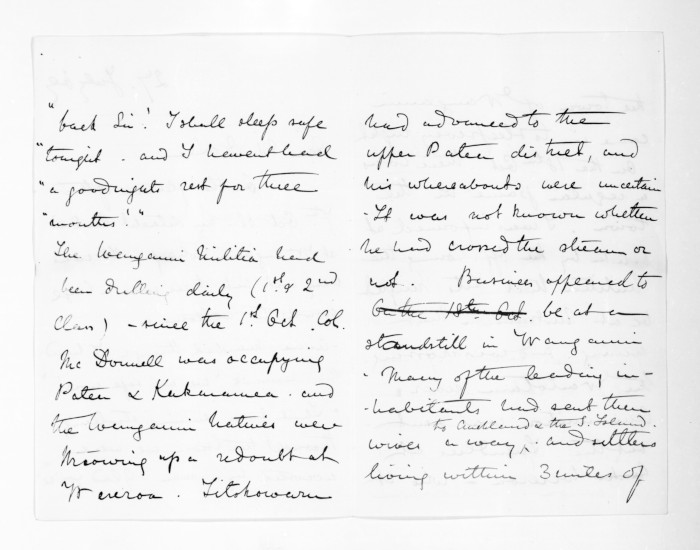 "back Sir! I shall sleep safe
"tonight. and I havent had
"a goodnights rest for three
"months!"
The Wanganui Militia had
been drilling daily (1st & 2nd
Class) - since the 1st Oct. Col.
McDonnell was occupying
Patea & Kakaramea. and
the Wanganui Natives were
throwing up a redoubt at
Wereroa. Titokowaru
had advanced to the
upper Patea district, and
his whereabouts were uncertain
- It was not known whether
he had crossed the stream or
not. Business appeared to
On the 18th Oct. be at a
standstill in Wanganui
- Many of the leading in-
-habitants had sent their
to Auckland & the S. Island.
wives away, and settlers
living within 3 miles of